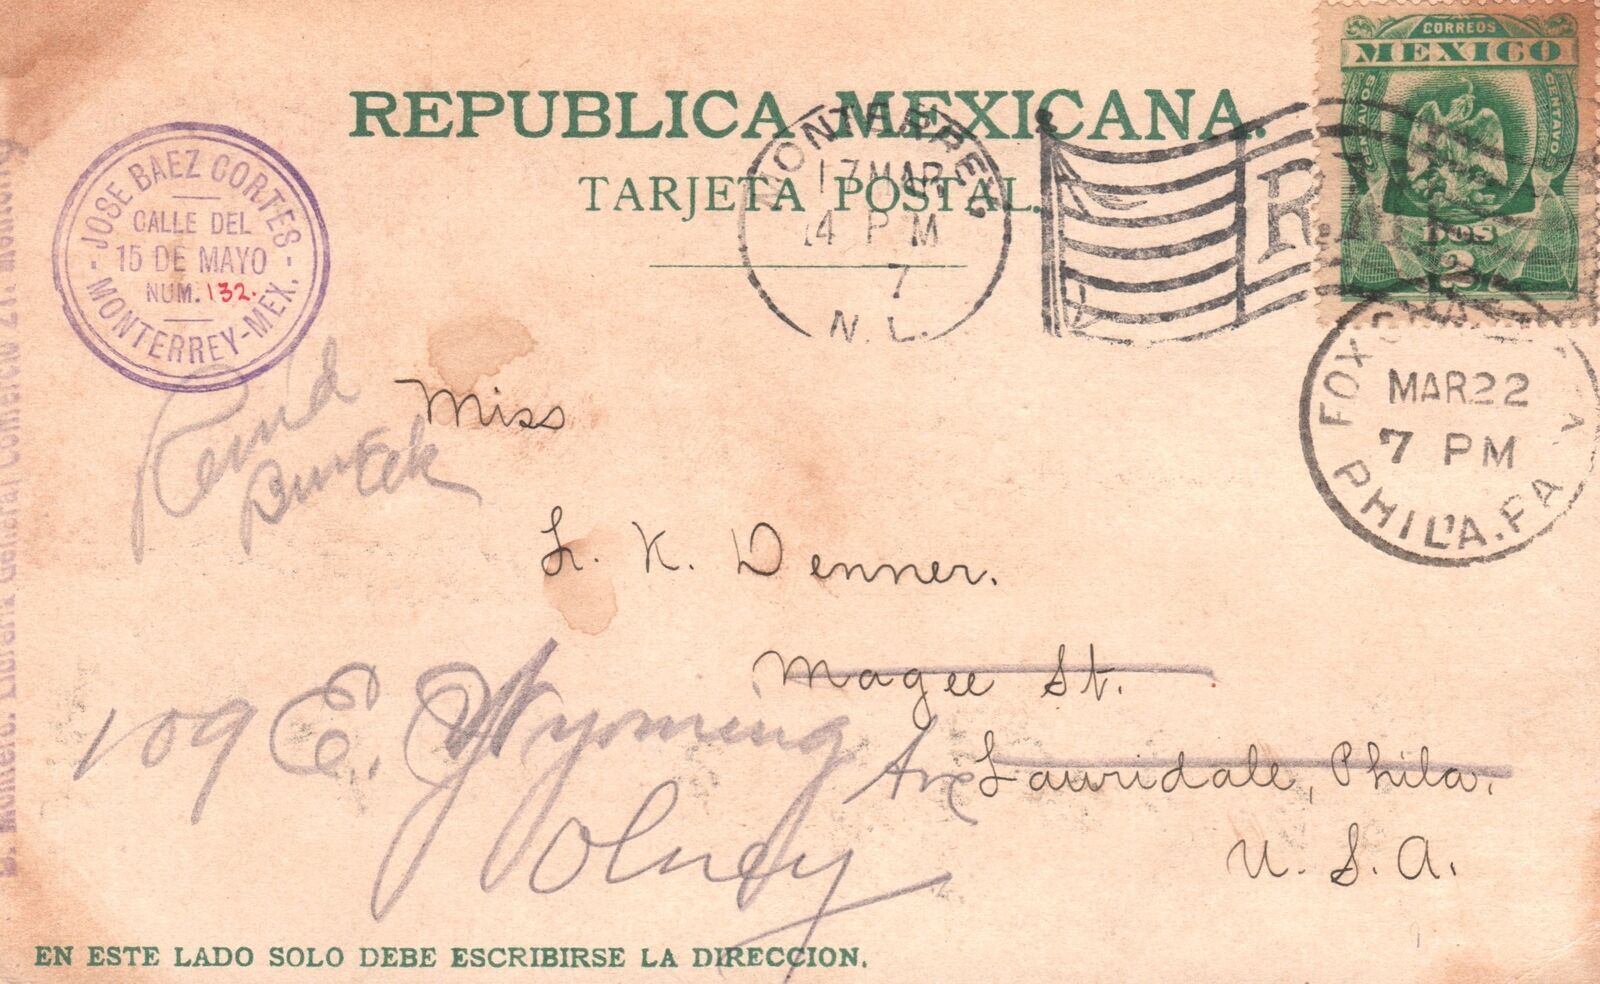 CORREOS
MEXICO
CENTAVOS
CENTAVOS
DOS
2
REPUBLICA MEXICANA.
TARJETA POSTAL.
MONTERREY
17 MAR
4 PM
7
N. L.
R
JOSE BAEZ CORTES
CALLE DEL
15 DE MAYO
NUM. 132.
MONTERREY-MEX.
FOX CHASE
MAR 22
7 PM
PHIL'A. PA
Miss
L. K. Denner.
Magee St.
Lawndale, Phila.
U. S. A.
109 E. Wyoming Ave
Olney
EN ESTE LADO SOLO DEBE ESCRIBIRSE LA DIRECCION.
Librería General, Comercio